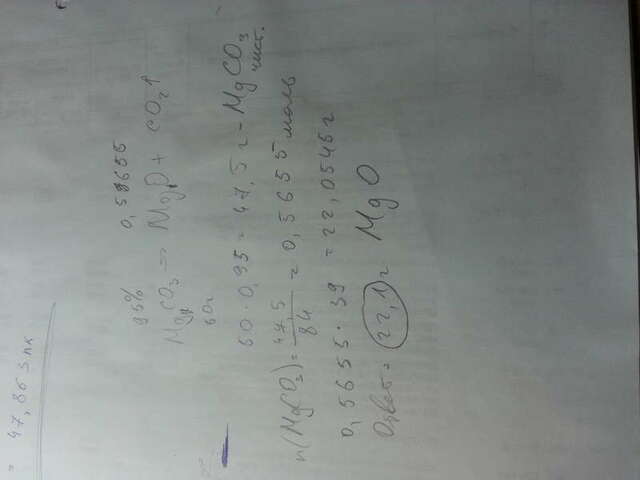 = 47,86
95% 0,59655
MgCO3 = MgO + CO2↑
50г
50 · 0,95 = 47,5 г - MgCO3 чист.
n(MgCO3) = 47,5 / 84 = 0,5655 моль
0,5655 · 39 = 22,0545 г
Ответ = 22,1 г MgO